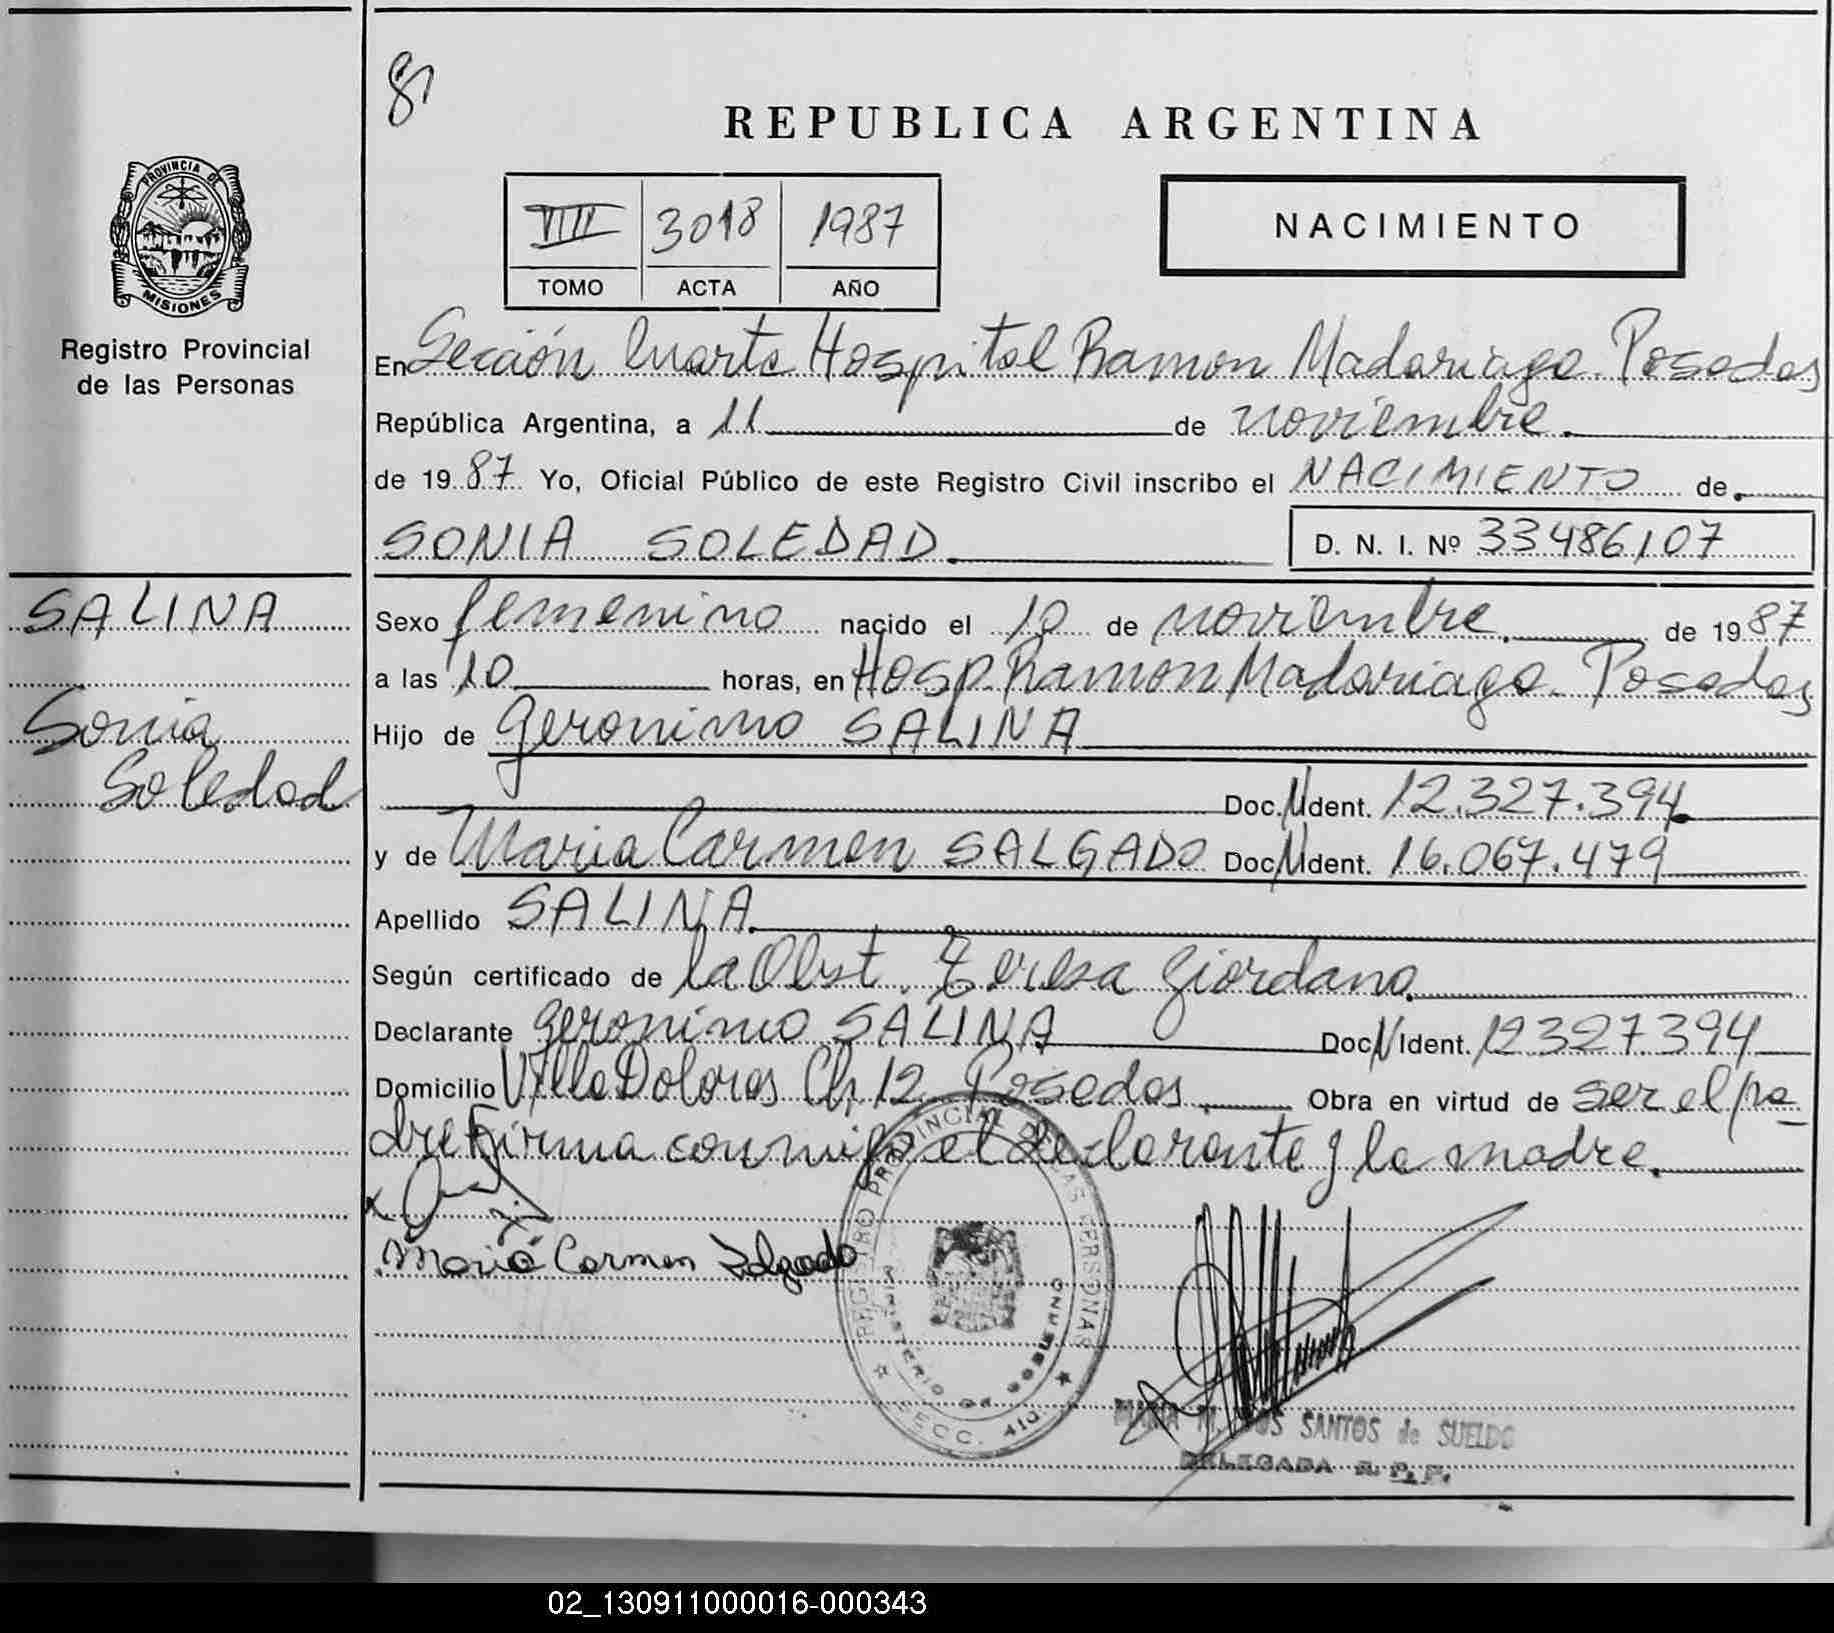 81
REPUBLICA ARGENTINA
PROVINCIA DE
MISIONES
Registro Provincial
de las Personas
VIII 3018 1987
TOMO ACTA AÑO
NACIMIENTO
En Sección Cuarta Hospital Ramon Madariaga. Posadas
República Argentina, a 11 de noviembre.
de 1987 Yo, Oficial Público de este Registro Civil inscribo el NACIMIENTO de
SONIA SOLEDAD
D. N. I. Nº 33486107
SALINA
Sonia
Soledad
Sexo femenino nacido el 10 de noviembre. de 1987
a las 10 horas, en Hosp. Ramon Madariaga. Posadas
Hijo de Geronimo SALINA
Doc. N Ident. 12.327.394
y de Maria Carmen SALGADO Doc N Ident. 16.067.479
Apellido SALINA
Según certificado de la Obst. Teresa Giordano
Declarante Geronimo SALINA Doc N Ident. 12327394
Domicilio Villa Dolores Ch. 12 Posadas. Obra en virtud de ser el pa-
dre Firma conmigo el declarante y la madre.
Maria Carmen Salgado
REGISTRO PROVINCIAL DE LAS PERSONAS
MINISTERIO DE GOBIERNO
SECC. 4ta.
M. DOS SANTOS de SUELDO
DELEGADA R. P. P.
02_130911000016-000343